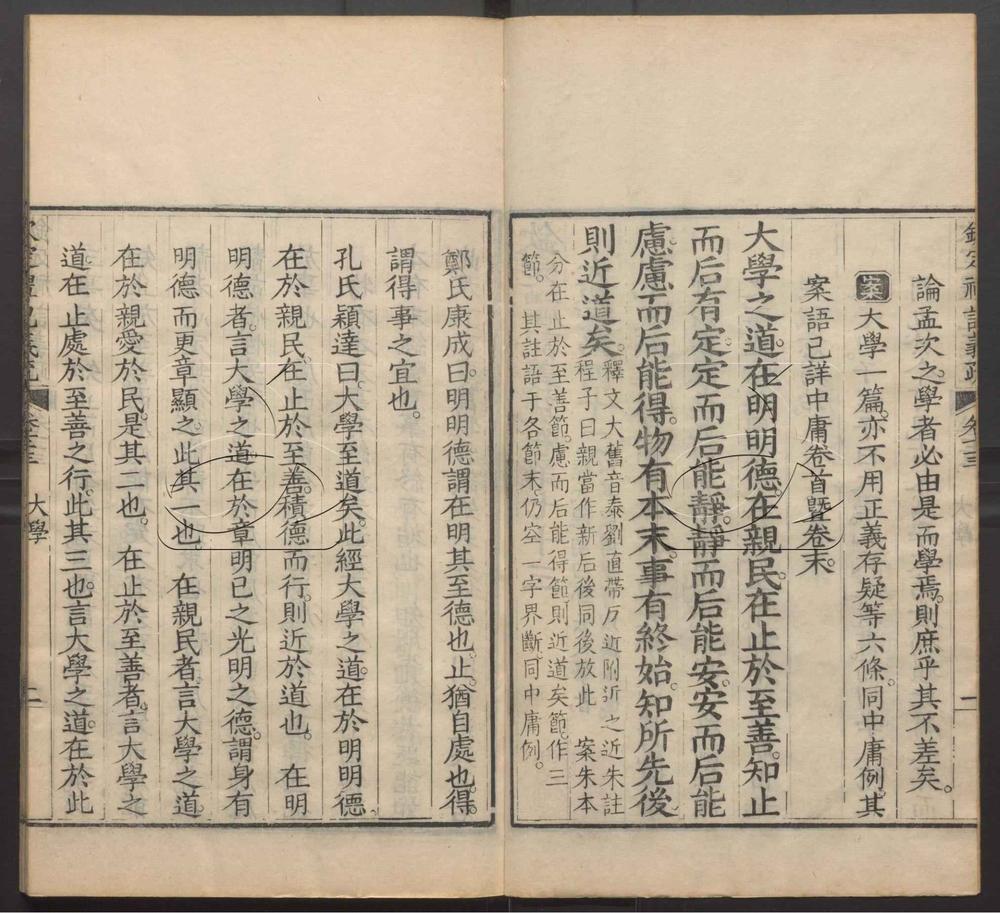 論孟次之學者必由是而學焉則庶乎其不差矣
案 大學一篇亦不用正義存疑等六條同中庸例其
案語已詳中庸卷首曁卷末
大學之道在明明德在親民在止於至善知止
而后有定定而后能靜靜而后能安安而后能
慮慮而后能得物有本末事有終始知所先後
則近道矣
釋文大舊音泰劉直帶反近附近之近朱註
程子曰親當作新后後同後放此 案朱本
分在止於至善節慮而后能得節則近道矣節作三
節其註語于各節末仍空一字界斷同中庸例
大學
鄭氏康成曰明明德謂在明其至德也止猶自處也得
謂得事之宜也
孔氏穎達曰大學至道矣此經大學之道在於明明德
在於親民在止於至善積德而行則近於道也 在明
明德者言大學之道在於章明己之光明之德謂身有
明德而更章顯之此其一也 在親民者言大學之道
在於親愛於民是其二也 在止於至善者言大學之
道在止處於至善之行此其三也言大學之道在於此